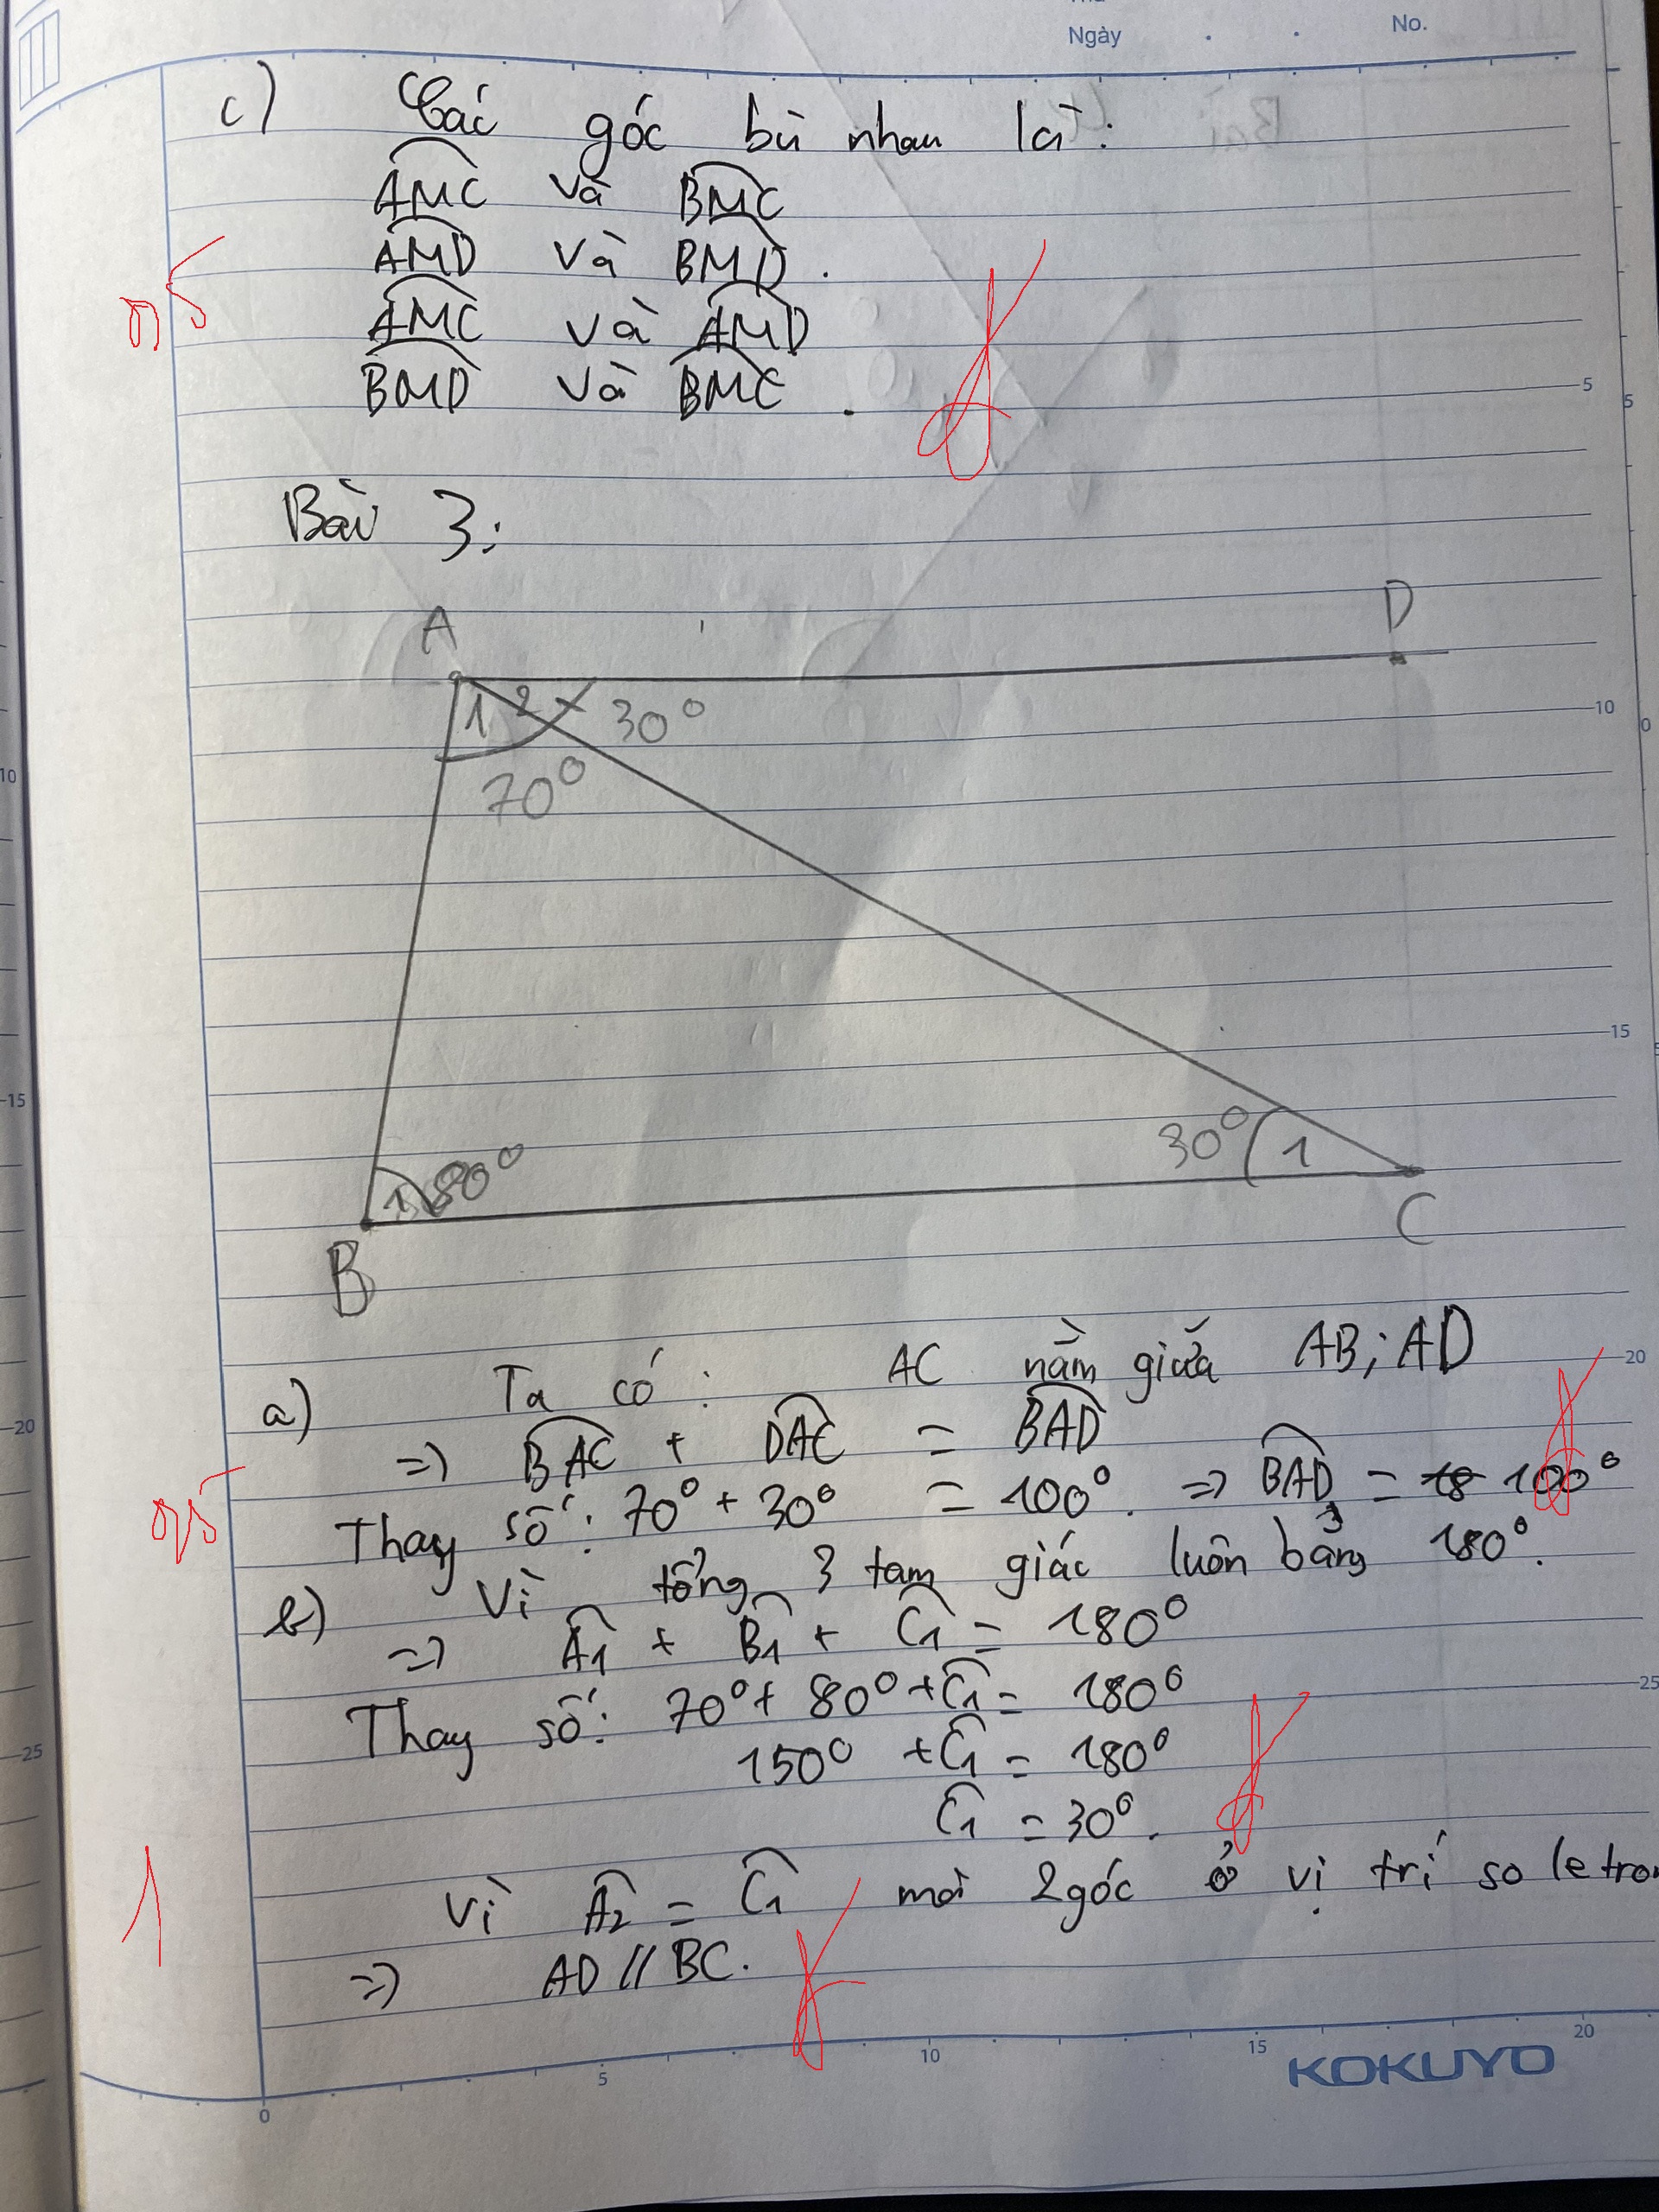 Ngày . . No.
c) Các góc bù nhau là:
AMC và BMC
AMD và BMD.
0,5
AMC và AMD
BMD và BMC.
Bài 3:
A D
1 2 30°
70°
30° 1
1 80°
B C
a) Ta có: AC nằm giữa AB; AD
=> BAC + DAC = BAD
0,5
Thay số: 70° + 30° = 100°. => BAD = 100°
b) Vì tổng 3 tam giác luôn bằng 180°.
=> A1 + B1 + C1 = 180°
Thay số: 70° + 80° + C1 = 180°
150° + C1 = 180°
C1 = 30°.
1
Vì A2 = C1 mà 2 góc ở vị trí so le tron
=> AD // BC.
0 5 10 15 20
KOKUYO